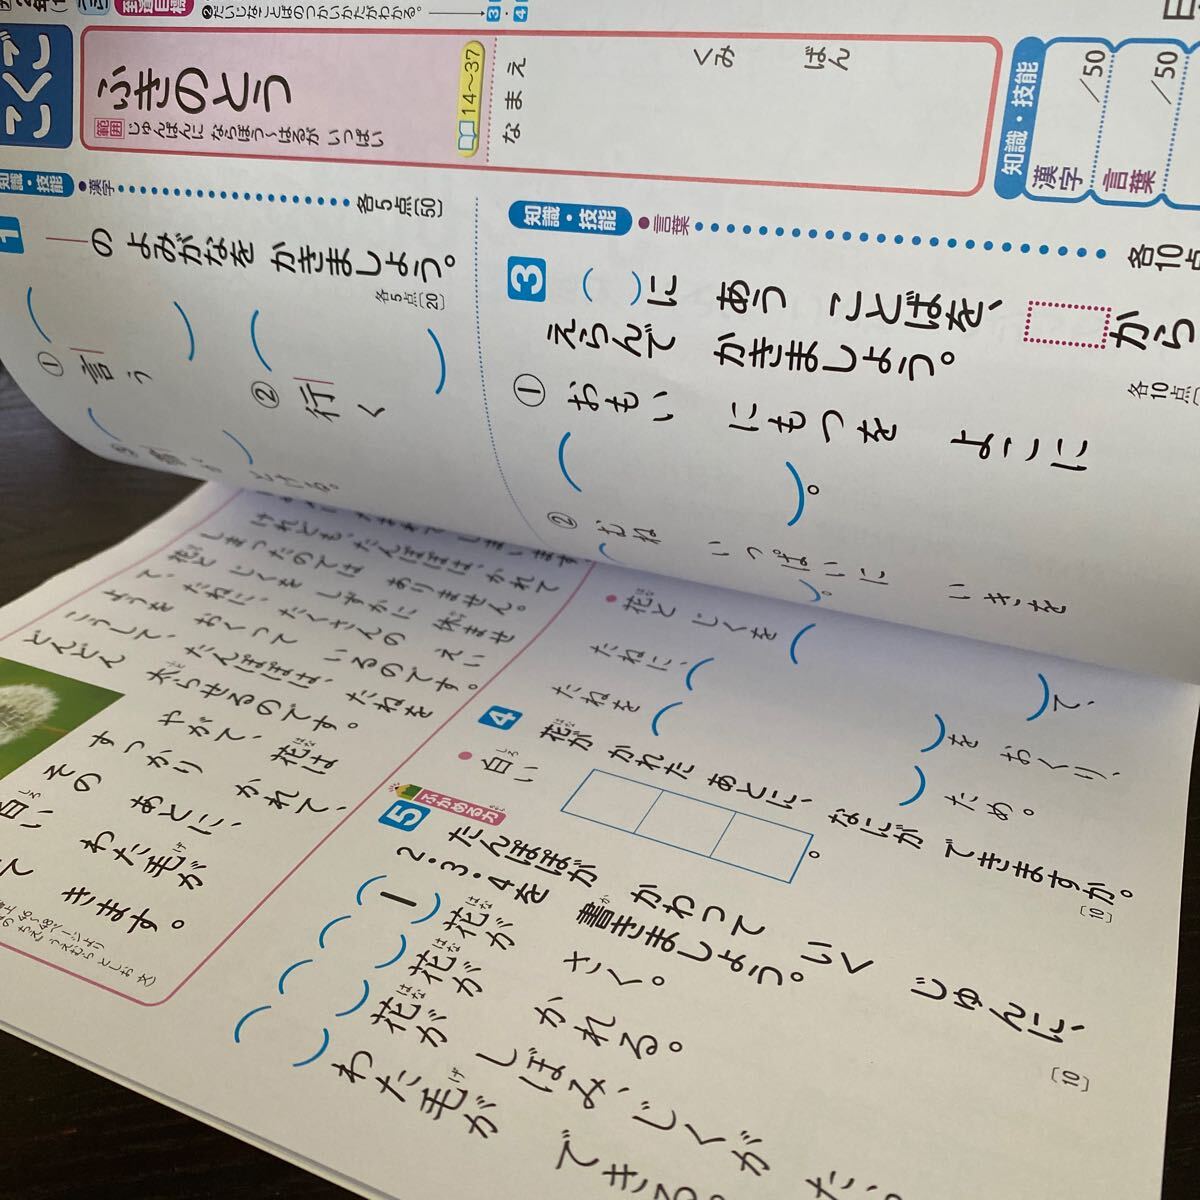 こくご
到達目標
❷だいじなことばのつかいかたがわかる。
3・4
ふきのとう
範囲 じゅんばんに ならぼう〜はるが いっぱい
14〜37
なまえ
くみ
ばん
知識・技能
漢字
/50
言葉
/50
知識・技能
●漢字
各5点〔50〕
1
の よみがなを かきましょう。
各5点〔20〕
① 言う
② 行く
知識・技能
●言葉
各10点
3
（ ）に あう ことばを、 から
えらんで かきましょう。
各10点
① おもい にもつを よこに
（ ）。
② むね いっぱいに いきを
（ ）。
●花と じくを （ ）て、
はな
たねに、（ ）を おくり、
たねを （ ）ため。
4
花が かれた あとに、なにが できますか。
はな
〔10〕
●白い 。
しろ
ふかめる力
5
たんぽぽが かわって いく じゅんに、
2・3・4を 書きましょう。
か
〔10〕
（1）花が さく。
はな
（ ）花が かれる。
はな
（ ）花が しぼみ、じくが た
はな
（ ）わた毛が できる。
げ
けれども、たんぽぽは、かれて
しまったのでは ありません。
花と じくを しずかに 休ませ
て、たねに、たくさんの えい
ようを おくって いるのです。
こうして、たんぽぽは、たねを
どんどん 太らせるのです。
やがて、花は
すっかり かれて、
その あとに、
白い わた毛が
て きます。
うえむら としお 文）